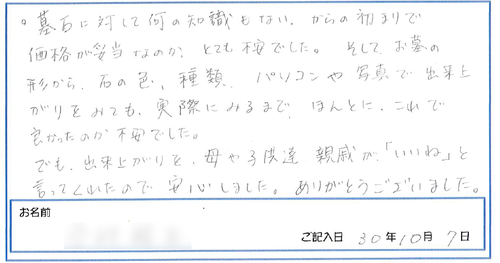 。墓石に対して何の知識もない、からの初まりで
価格が妥当なのか、とても不安でした。そして、お墓の
形から、石の色、種類、パソコンや写真で出来上
がりをみても、実際にみるまで、ほんとに、これで
良かったのか不安でした。
でも、出来上がりを、母や子供達 親戚が、「いいね」と
言ってくれたので安心しました。ありがとうございました。
お名前
ご記入日 30年10月7日